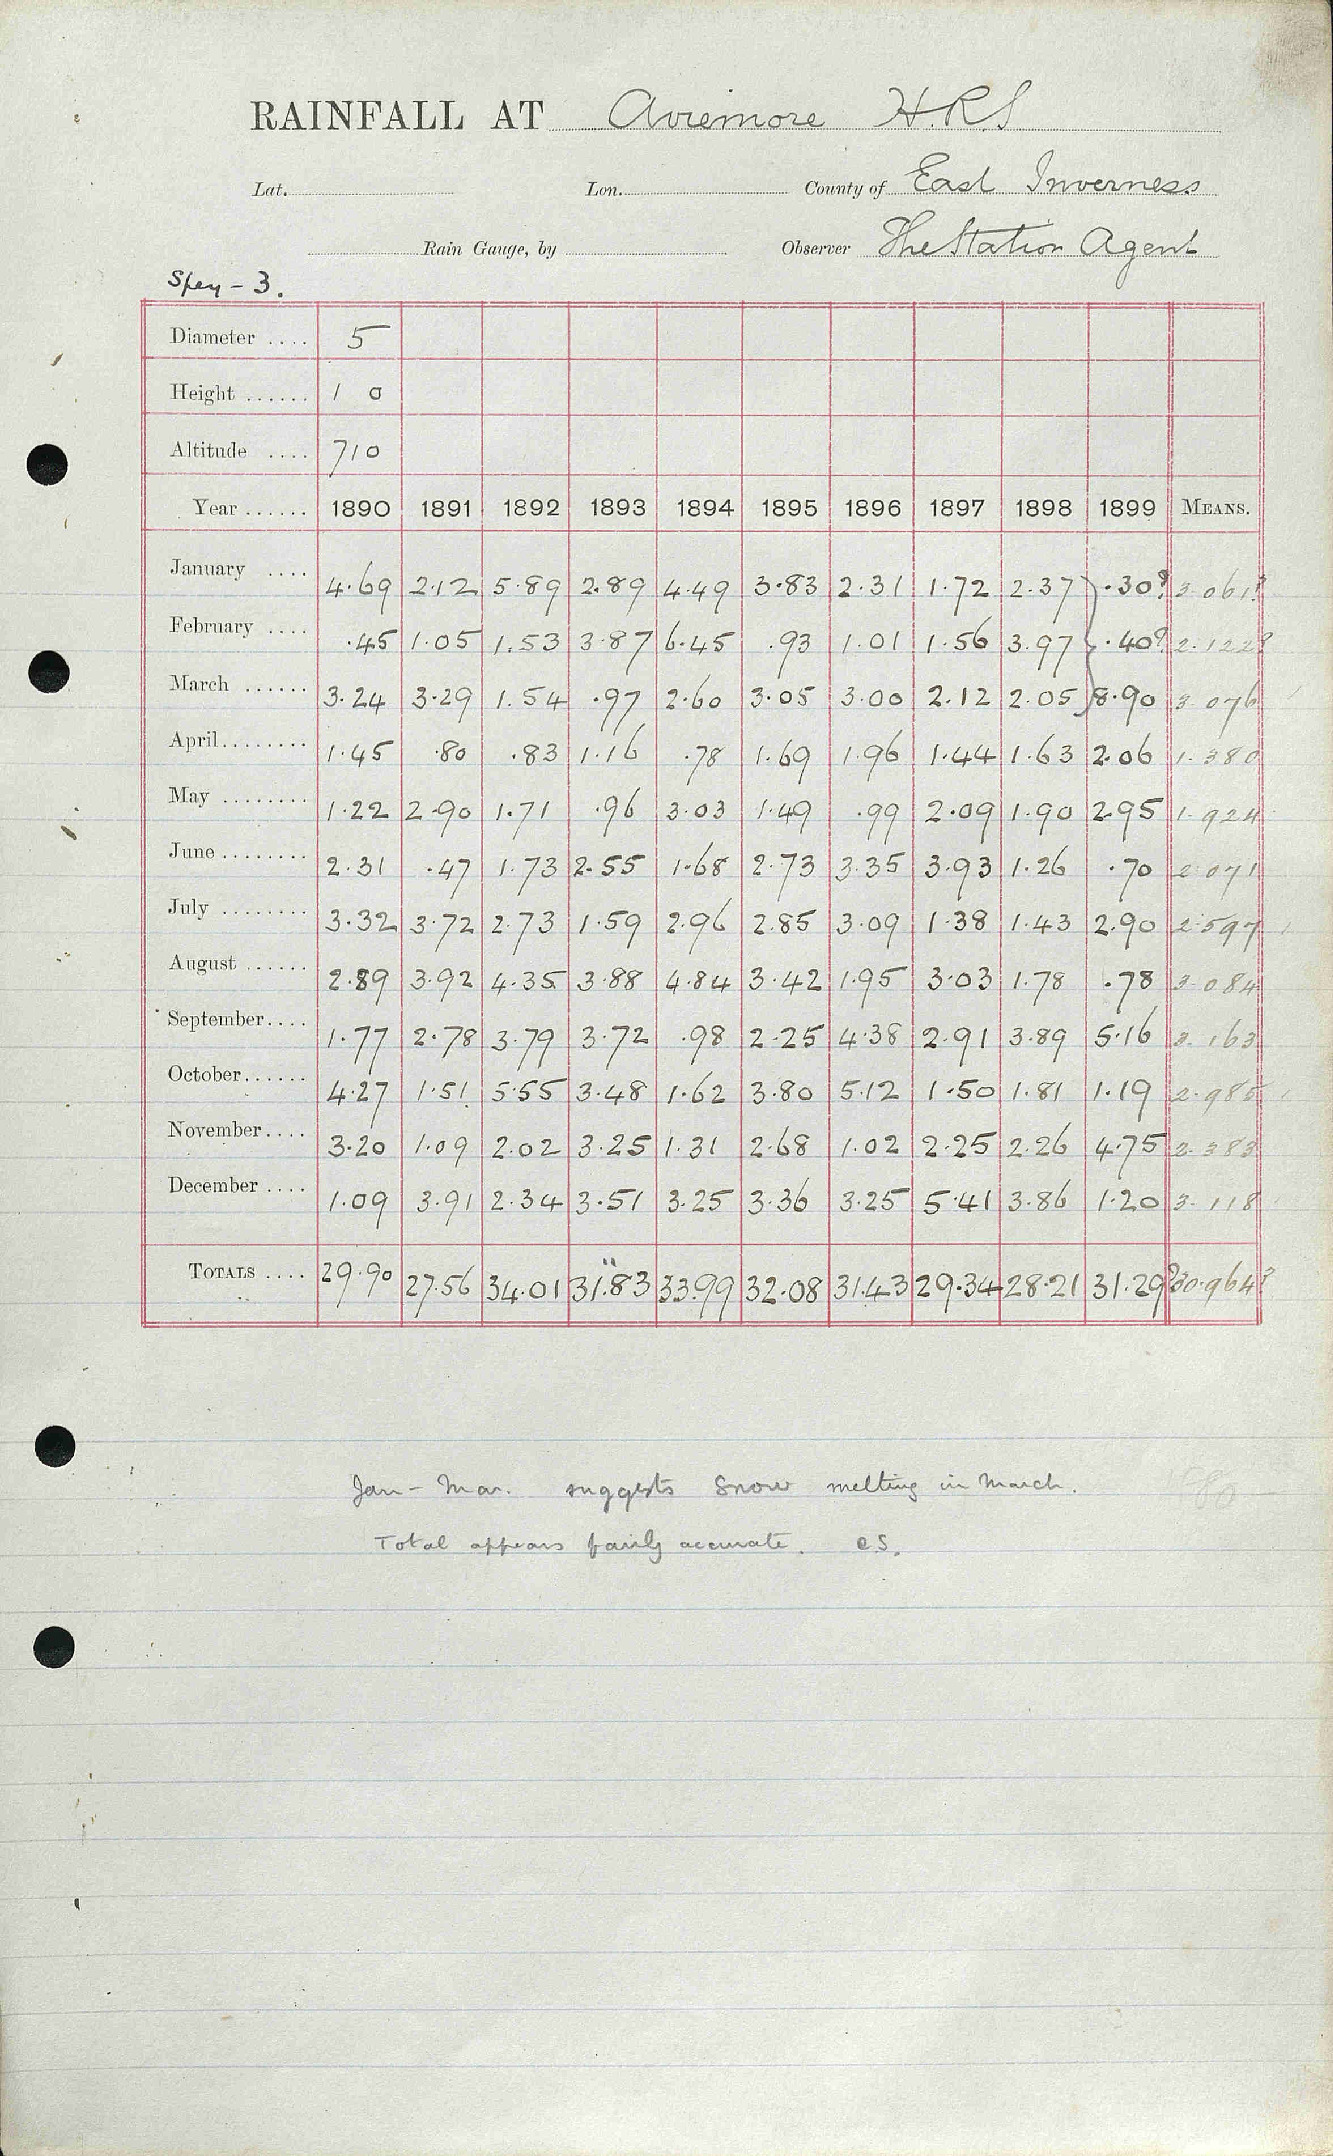 RAINFALL AT Aviemore H.R.S
Lat. Lon. County of East Inverness
Rain Gauge, by Observer The Station Agent
Spey - 3.
Diameter .... 5
Height ...... 1 0
Altitude .... 710
Year ...... 1890 1891 1892 1893 1894 1895 1896 1897 1898 1899 MEANS.
January .... 4.69 2.12 5.89 2.89 4.49 3.83 2.31 1.72 2.37 .30? 3.061?
February .... .45 1.05 1.53 3.87 6.45 .93 1.01 1.56 3.97 .40? 2.122?
March ...... 3.24 3.29 1.54 .97 2.60 3.05 3.00 2.12 2.05 8.90 3.076
April........ 1.45 .80 .83 1.16 .78 1.69 1.96 1.44 1.63 2.06 1.380
May ........ 1.22 2.90 1.71 .96 3.03 1.49 .99 2.09 1.90 2.95 1.924
June ........ 2.31 .47 1.73 2.55 1.68 2.73 3.35 3.93 1.26 .70 2.071
July ........ 3.32 3.72 2.73 1.59 2.96 2.85 3.09 1.38 1.43 2.90 2.597
August ...... 2.89 3.92 4.35 3.88 4.84 3.42 1.95 3.03 1.78 .78 3.084
September.... 1.77 2.78 3.79 3.72 .98 2.25 4.38 2.91 3.89 5.16 3.163
October...... 4.27 1.51 5.55 3.48 1.62 3.80 5.12 1.50 1.81 1.19 2.985
November.... 3.20 1.09 2.02 3.25 1.31 2.68 1.02 2.25 2.26 4.75 2.383
December .... 1.09 3.91 2.34 3.51 3.25 3.36 3.25 5.41 3.86 1.20 3.118
TOTALS .... 29.90 27.56 34.01 31.83 33.99 32.08 31.43 29.34 28.21 31.29? 30.964?
Jan - Mar. suggests snow melting in March.
Total appears fairly accurate. C.S.